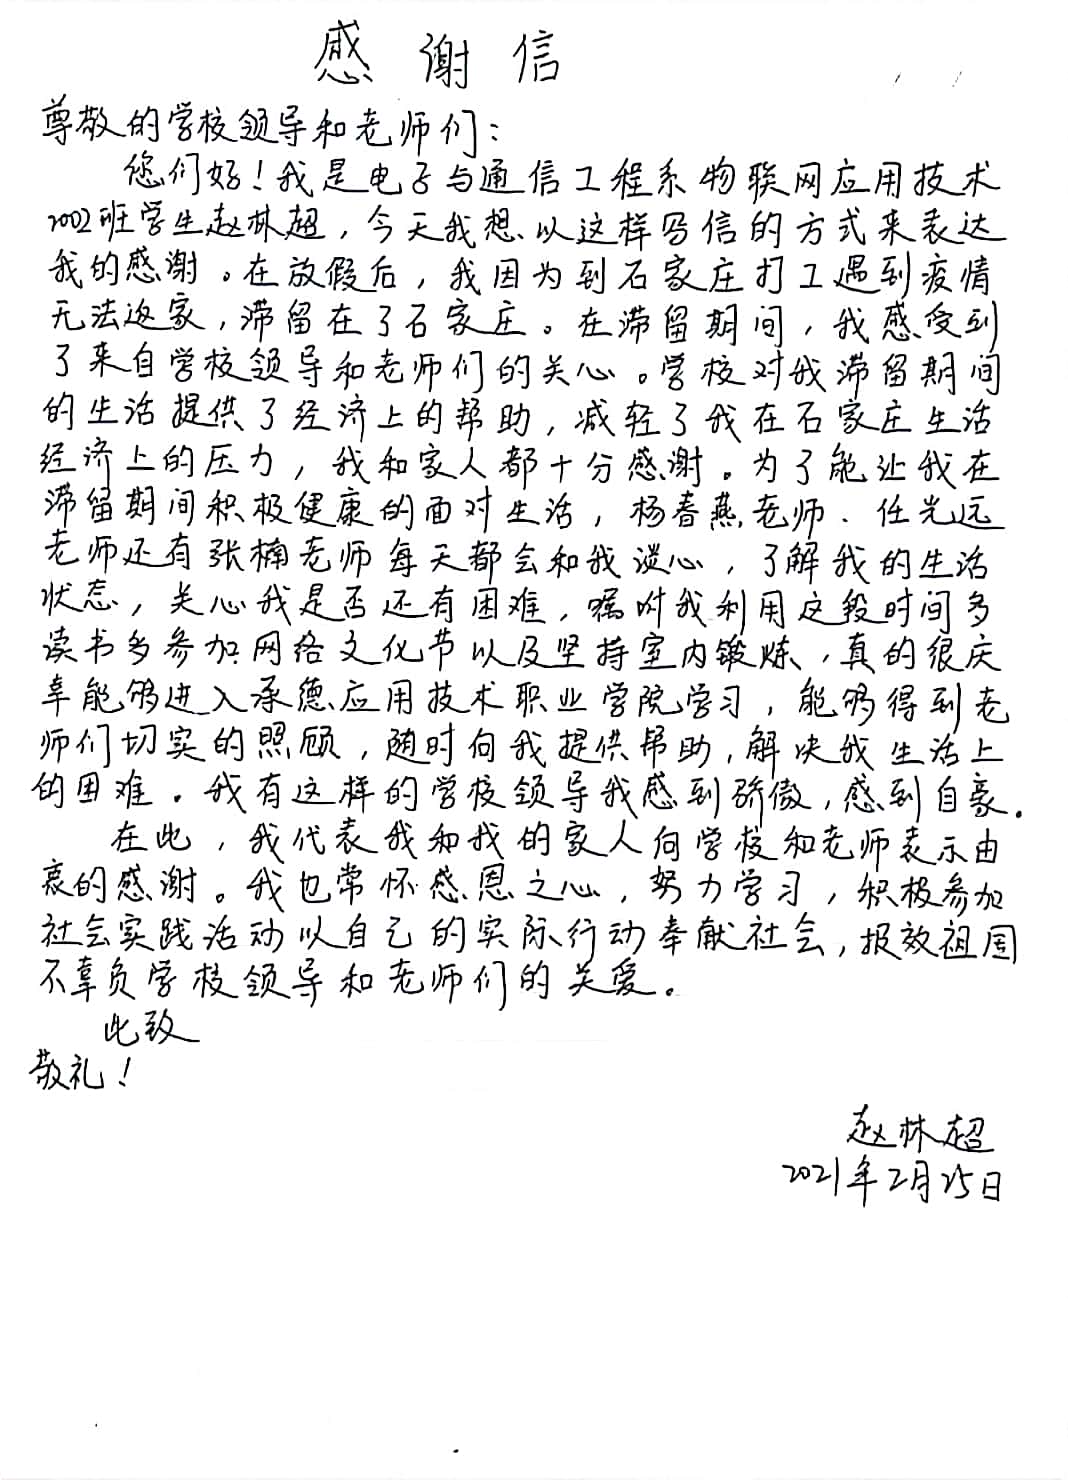 感谢信
尊敬的学校领导和老师们：
您们好！我是电子与通信工程系物联网应用技术
2002班学生赵林超，今天我想以这样写信的方式来表达
我的感谢。在放假后，我因为到石家庄打工遇到疫情
无法返家，滞留在了石家庄。在滞留期间，我感受到
了来自学校领导和老师们的关心。学校对我滞留期间
的生活提供了经济上的帮助，减轻了我在石家庄生活
经济上的压力，我和家人都十分感谢。为了能让我在
滞留期间积极健康的面对生活，杨春燕老师、任光远
老师还有张楠老师每天都会和我谈心，了解我的生活
状态，关心我是否还有困难，嘱咐我利用这段时间多
读书多参加网络文化节以及坚持室内锻炼，真的很庆
幸能够进入承德应用技术职业学院学习，能够得到老
师们切实的照顾，随时向我提供帮助，解决我生活上
的困难。我有这样的学校领导我感到骄傲，感到自豪.
在此，我代表我和我的家人向学校和老师表示由
衷的感谢。我也常怀感恩之心，努力学习，积极参加
社会实践活动以自己的实际行动奉献社会，报效祖国
不辜负学校领导和老师们的关爱。
此致
敬礼！
赵林超
2021年2月25日